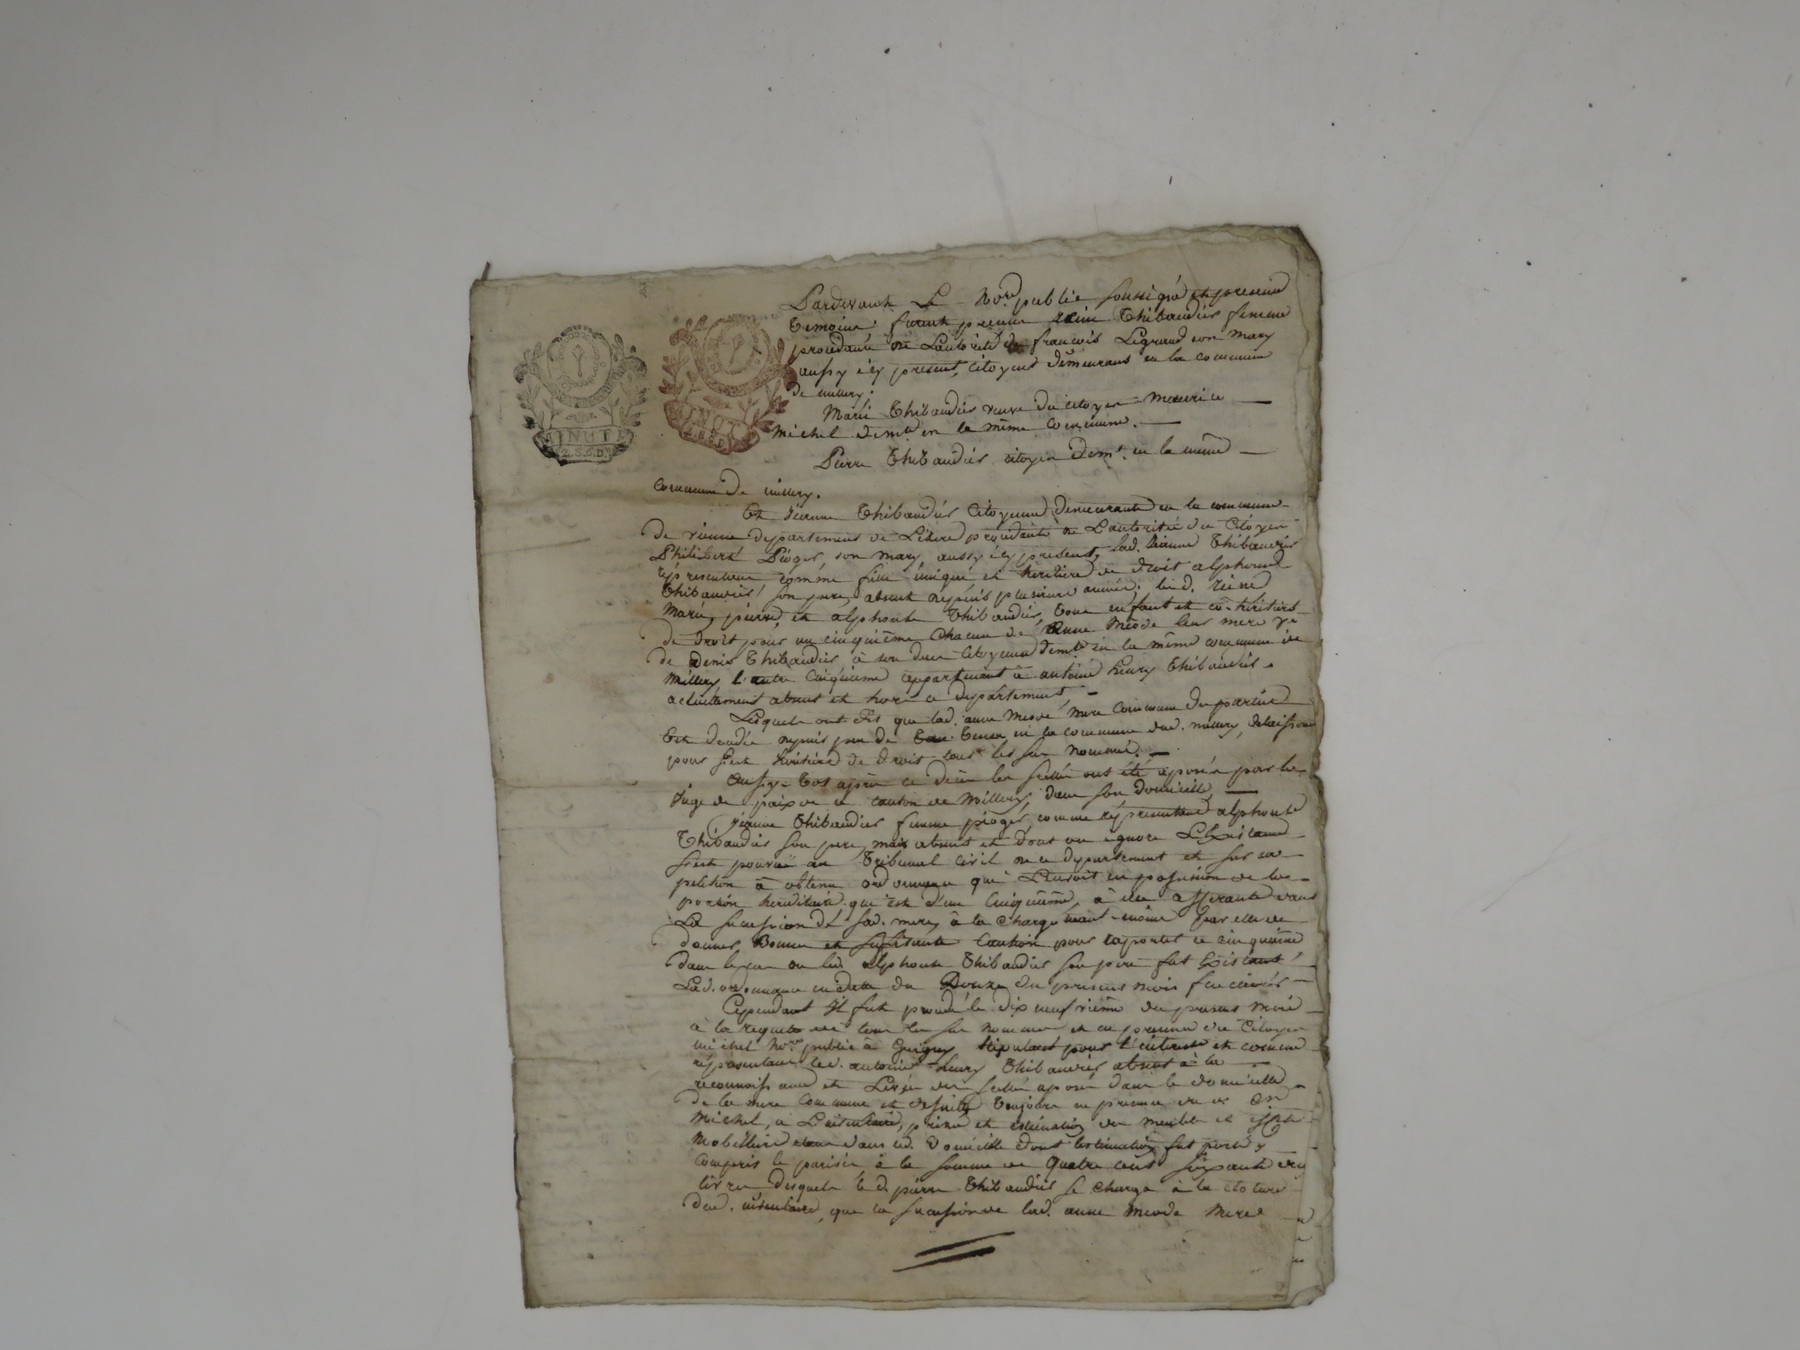 Pardevant Le Nore public soussigné et presence
temoins, furent presents Thibaudier femme
procédante de L'autorité de françois Legrand son mary
aussy icy present, citoyens demeurans en la commune
de millery;
Marie Thibaudier veuve du citoyen Maurice
Michel demte en la même commune.
Pierre Thibaudier citoyen demt. en la même
MINUTE
2.S.6.D.
MINUTE
commune de millery.
Et Jeanne Thibaudier Citoyenne demeurante en la commune
de vienne departement de L'isere procedante de L'autorité du Citoyen
Philibert Pioger, son mary aussy icy present, lad. Jeanne Thibaudier
représentant comme fille unique et heritiere de droit alphonse
Thibaudier, son pere, absent depuis plusieurs années. led.
Marie, pierre, et alphonse Thibaudier, tous enfants et co-heritiers
de droit pour un cinquième chacun de anne Mésde leur mere ve
de denis Thibaudier à son deces citoyenne demte en la même commune de
Millery l'autre cinquieme appartenant à antoine henry Thibaudier
actuellement absent et hors ce departement,
Lesquels ont dit que lad. anne Mesde mere commune des parties
Est decedée depuis peu de tems en la commune dud. millery, delaissant
pour ses heritiers de droit tous les sus nommés.
Aussy-tot après ce decès les scellés ont été aposés par le
Juge de paix de ce canton de Millery, dans son domicille,
Jeanne Thibaudier femme pioger, comme représentant alphonse
Thibaudier son pere, mais absent et dont on ignore L'Existance
s'est pourvüe au Tribunal civil de ce departement et sur sa
petition à obtenu ordonnance qui L'envoit en possession de la
portion hereditaire qui est d'un Cinquième, à elle afferante dans
La succession de sad. mere, à la charge neant-moins par elle de
donner Bonne et suffisante Caution pour raporter ce cinquième
dans le cas ou led. alphonse Thibaudier son pere fut Existant,
Lad. ordonnance en datte du Douze du present mois
Cependant Il fut procédé le dix neuf du present mois
à la requete de tous les sus nommés et en presence du Citoyen
michel Nore public à Grigny stipulant pour l'interest et comme
représentant led. antoine henry Thibaudier absent à la
reconnoissance et Levée des scellés aposés dans le domicille
de la mere commune et ensuite toujours en presence de ce Cn
Michel, à L'inventaire, prisée et estimation des meubles et effets
Mobilliers dans led. domicille dont l'estimation fut portée y
compris le parisis à la somme de quatre cent soixante dix
livres desquels led. pierre Thibaudier se chargea à la cloture
dud. inventaire, que la succession de lad. anne Mesde Mere